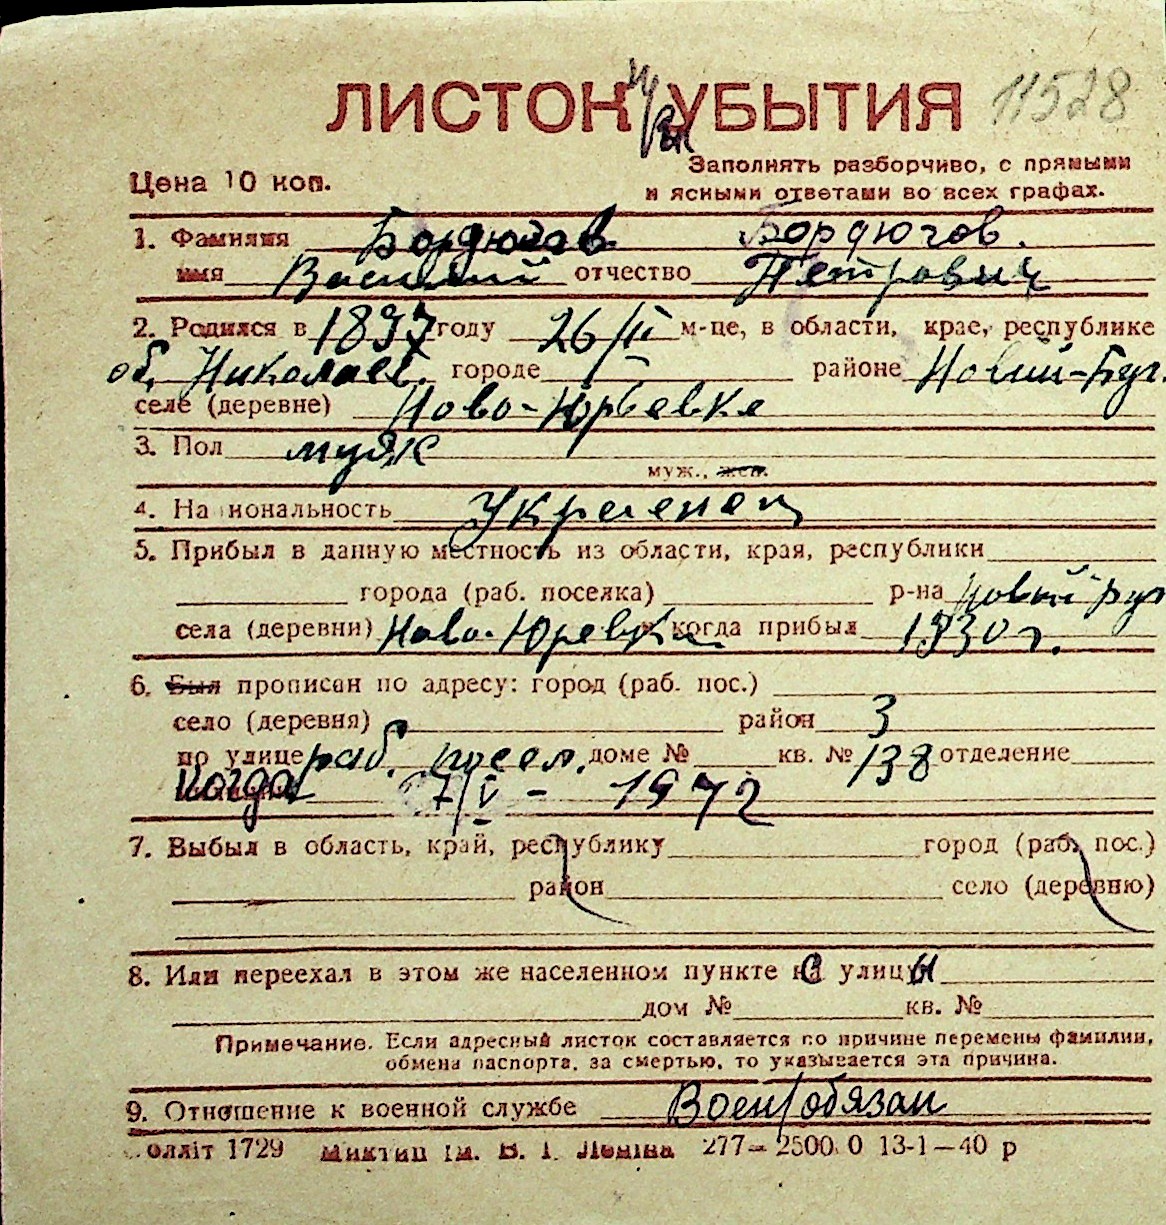 ЛИСТОК УБЫТИЯ 11528
Цена 10 коп.
Заполнять разборчиво, с прямыми
и ясными ответами во всех графах.
1. Фамилия Бордюгов Бордюгов.
имя Василий отчество Петрович
2. Родился в 1897 году 26/II м-це, в области, крае, республике
об. Николаев. городе районе Новий-Буг.
селе (деревне) Ново-Юрьевке
3. Пол муж
муж., жен.
4. Национальность Украенец
5. Прибыл в данную местность из области, края, республики
города (раб. поселка) р-на Новый Буг
села (деревни) Ново-Юревка когда прибыл 1930 г.
6. Был прописан по адресу: город (раб. пос.)
село (деревня) район 3
по улице раб. посел. доме № кв. № 138 отделение
Когда 7/V - 1972
7. Выбыл в область, край, республику город (раб. пос.)
район село (деревню)
8. Или переехал в этом же населенном пункте с улицы
дом № кв. №
Примечание. Если адресный листок составляется по причине перемены фамилии,
обмена паспорта, за смертью, то указывается эта причина.
9. Отношение к военной службе Воен/обязан
олліт 1729 ім. В. І. Леніна 277— 2500.0 13-1—40 р